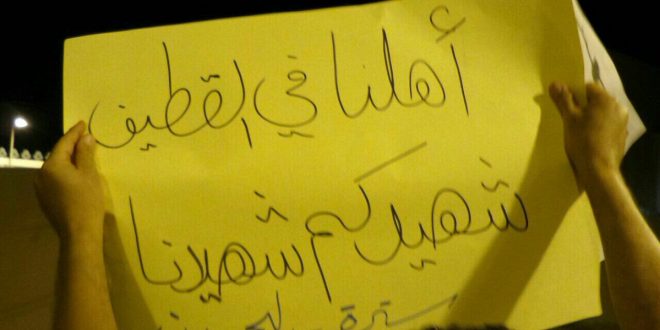 أهلنا في القطيف
شهيدكم شهيدنا